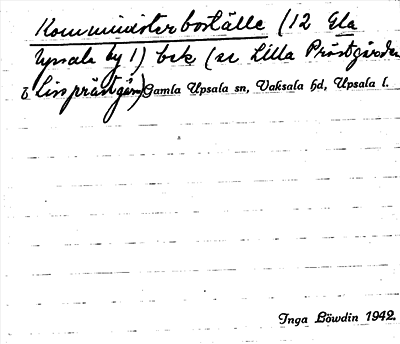 Komministerboställe (12 Gla
Upsala by 1) bek (se Lilla Prästgården
o Lissprästgån) Gamla Upsala sn, Vaksala hd, Upsala l.
Inga Löwdin 1942.